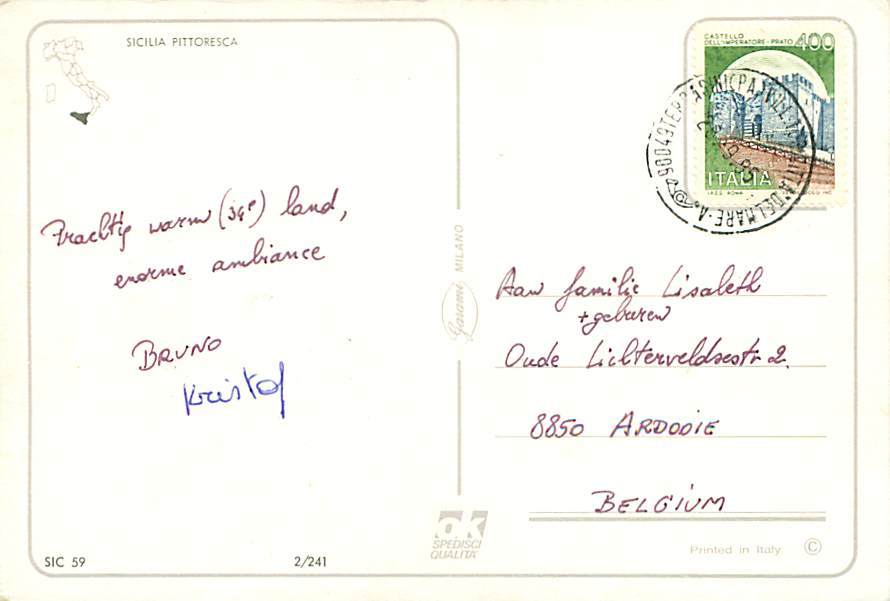 SICILIA PITTORESCA
Prachtig warm (34°) land,
enorme ambiance
BRUNO
Kristof
SIC 59
2/241
Garami MILANO
ok
SPEDISCI
QUALITA'
CASTELLO
DELL'IMPERATORE - PRATO 400
ITALIA
I.P.Z.S. ROMA
90049 TERRASINI (PA)
CITTA' DEL MARE - A.
Aan familie Lisabeth
+geburen
Oude Lichterveldsestr 2.
8850 ARDOOIE
BELGIUM
Printed in Italy ©